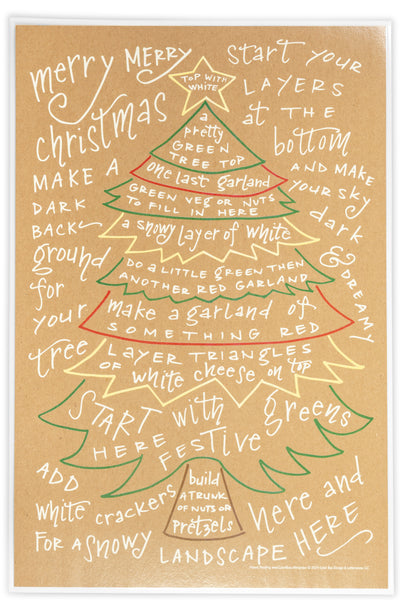 merry MERRY
christmas
MAKE A
DARK
BACK
ground
for
your
tree
start YOUR
LAYERS
at THE
bottom
AND MAKE
your SKY
dark
& DREAMY
TOP WITH
WHITE
a
pretty
GREEN
TREE TOP
one last garland
GREEN VEG OR NUTS
TO FILL IN HERE
a snowy layer of white
DO A LITTLE GREEN THEN
ANOTHER RED GARLAND
make a garland of
SOMETHING RED
LAYER TRIANGLES
OF white cheese on top
START with greens
HERE FESTIVE
build
A TRUNK
OF NUTS OR
PRETZELS
ADD
white crackers
FOR A SNOWY
LANDSCAPE HERE
here and